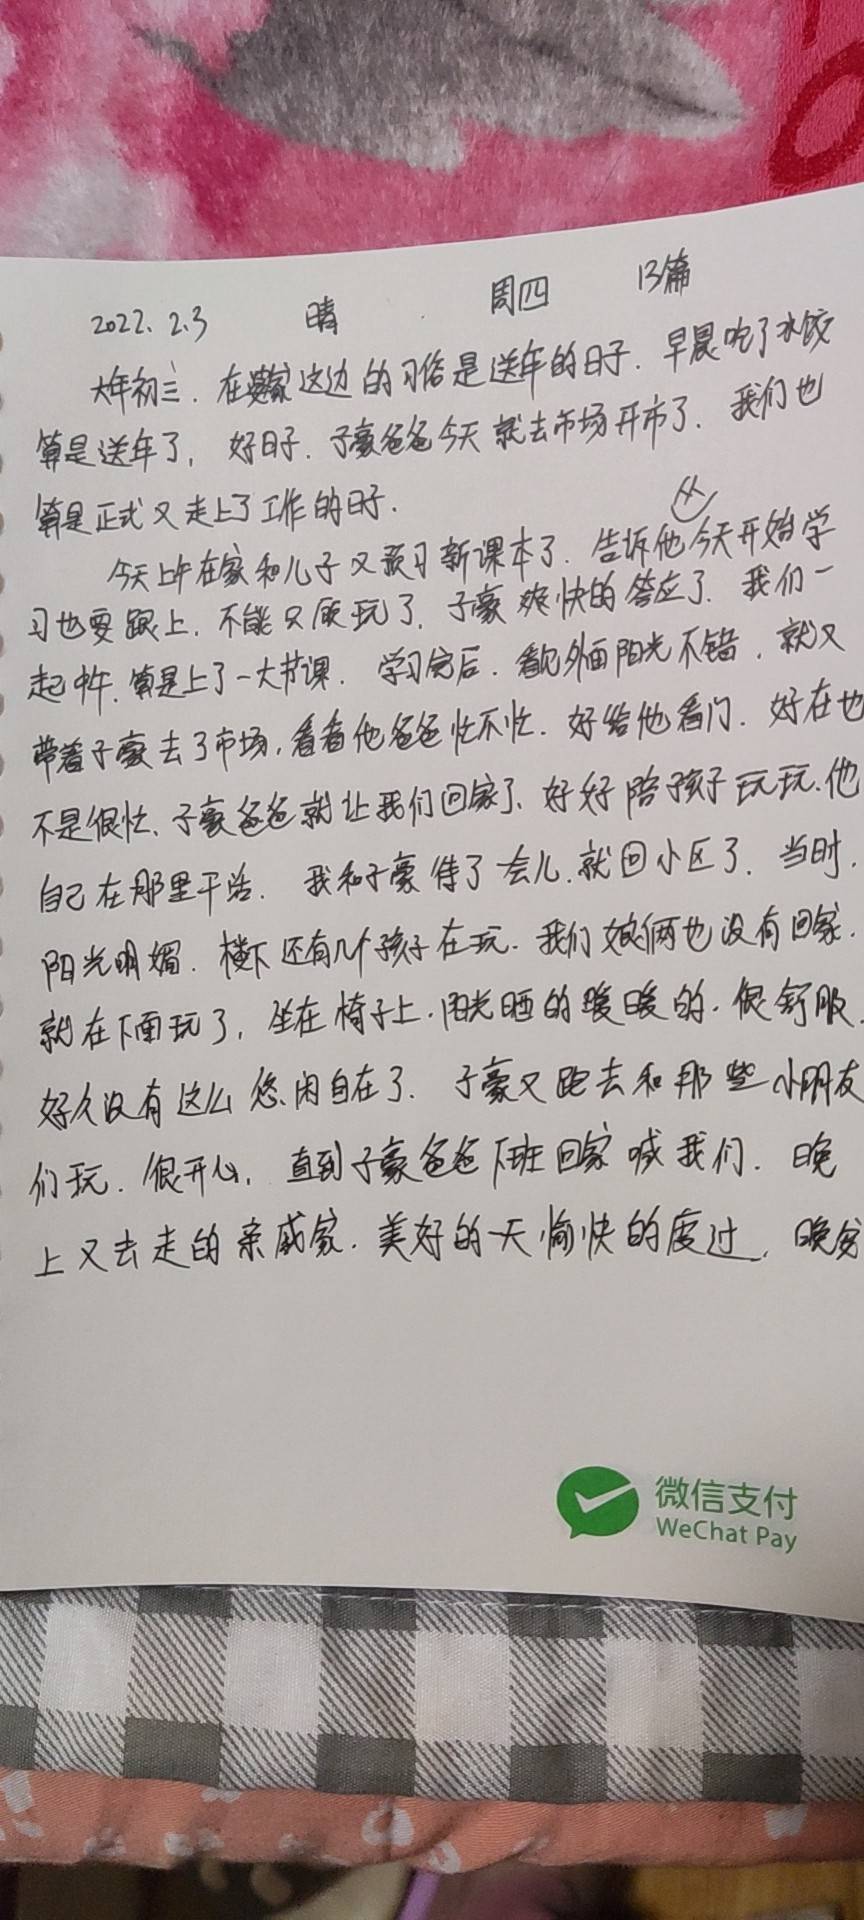 2022.2.3 晴 周四 13篇
大年初三.在我家这边的习俗是送年的日子.早晨吃了水饺
算是送年了,好日子.子豪爸爸今天就去市场开市了.我们也
算是正式又走上了工作的日子.
今天上午在家和儿子又预习新课本了.告诉他今天开始学
习也要跟上.不能只顾玩了.子豪爽快的答应了.我们一
起中午.算是上了一大节课.学习完后.看见外面阳光不错.就又
带着子豪去了市场,看看他爸爸忙不忙.好给他看门.好在也
不是很忙.子豪爸爸就让我们回家了.好好陪孩子玩玩.他
自己在那里干活.我和子豪待了会儿.就回小区了.当时,
阳光明媚.楼下还有几个孩子在玩.我们娘俩也没有回家.
就在下面玩了,坐在椅子上.阳光晒的暖暖的.很舒服.
好久没有这么悠闲自在了.子豪又跑去和那些小朋友
们玩.很开心,直到子豪爸爸下班回家喊我们.晚
上又去走的亲戚家.美好的一天愉快的度过,晚安
微信支付
WeChat Pay